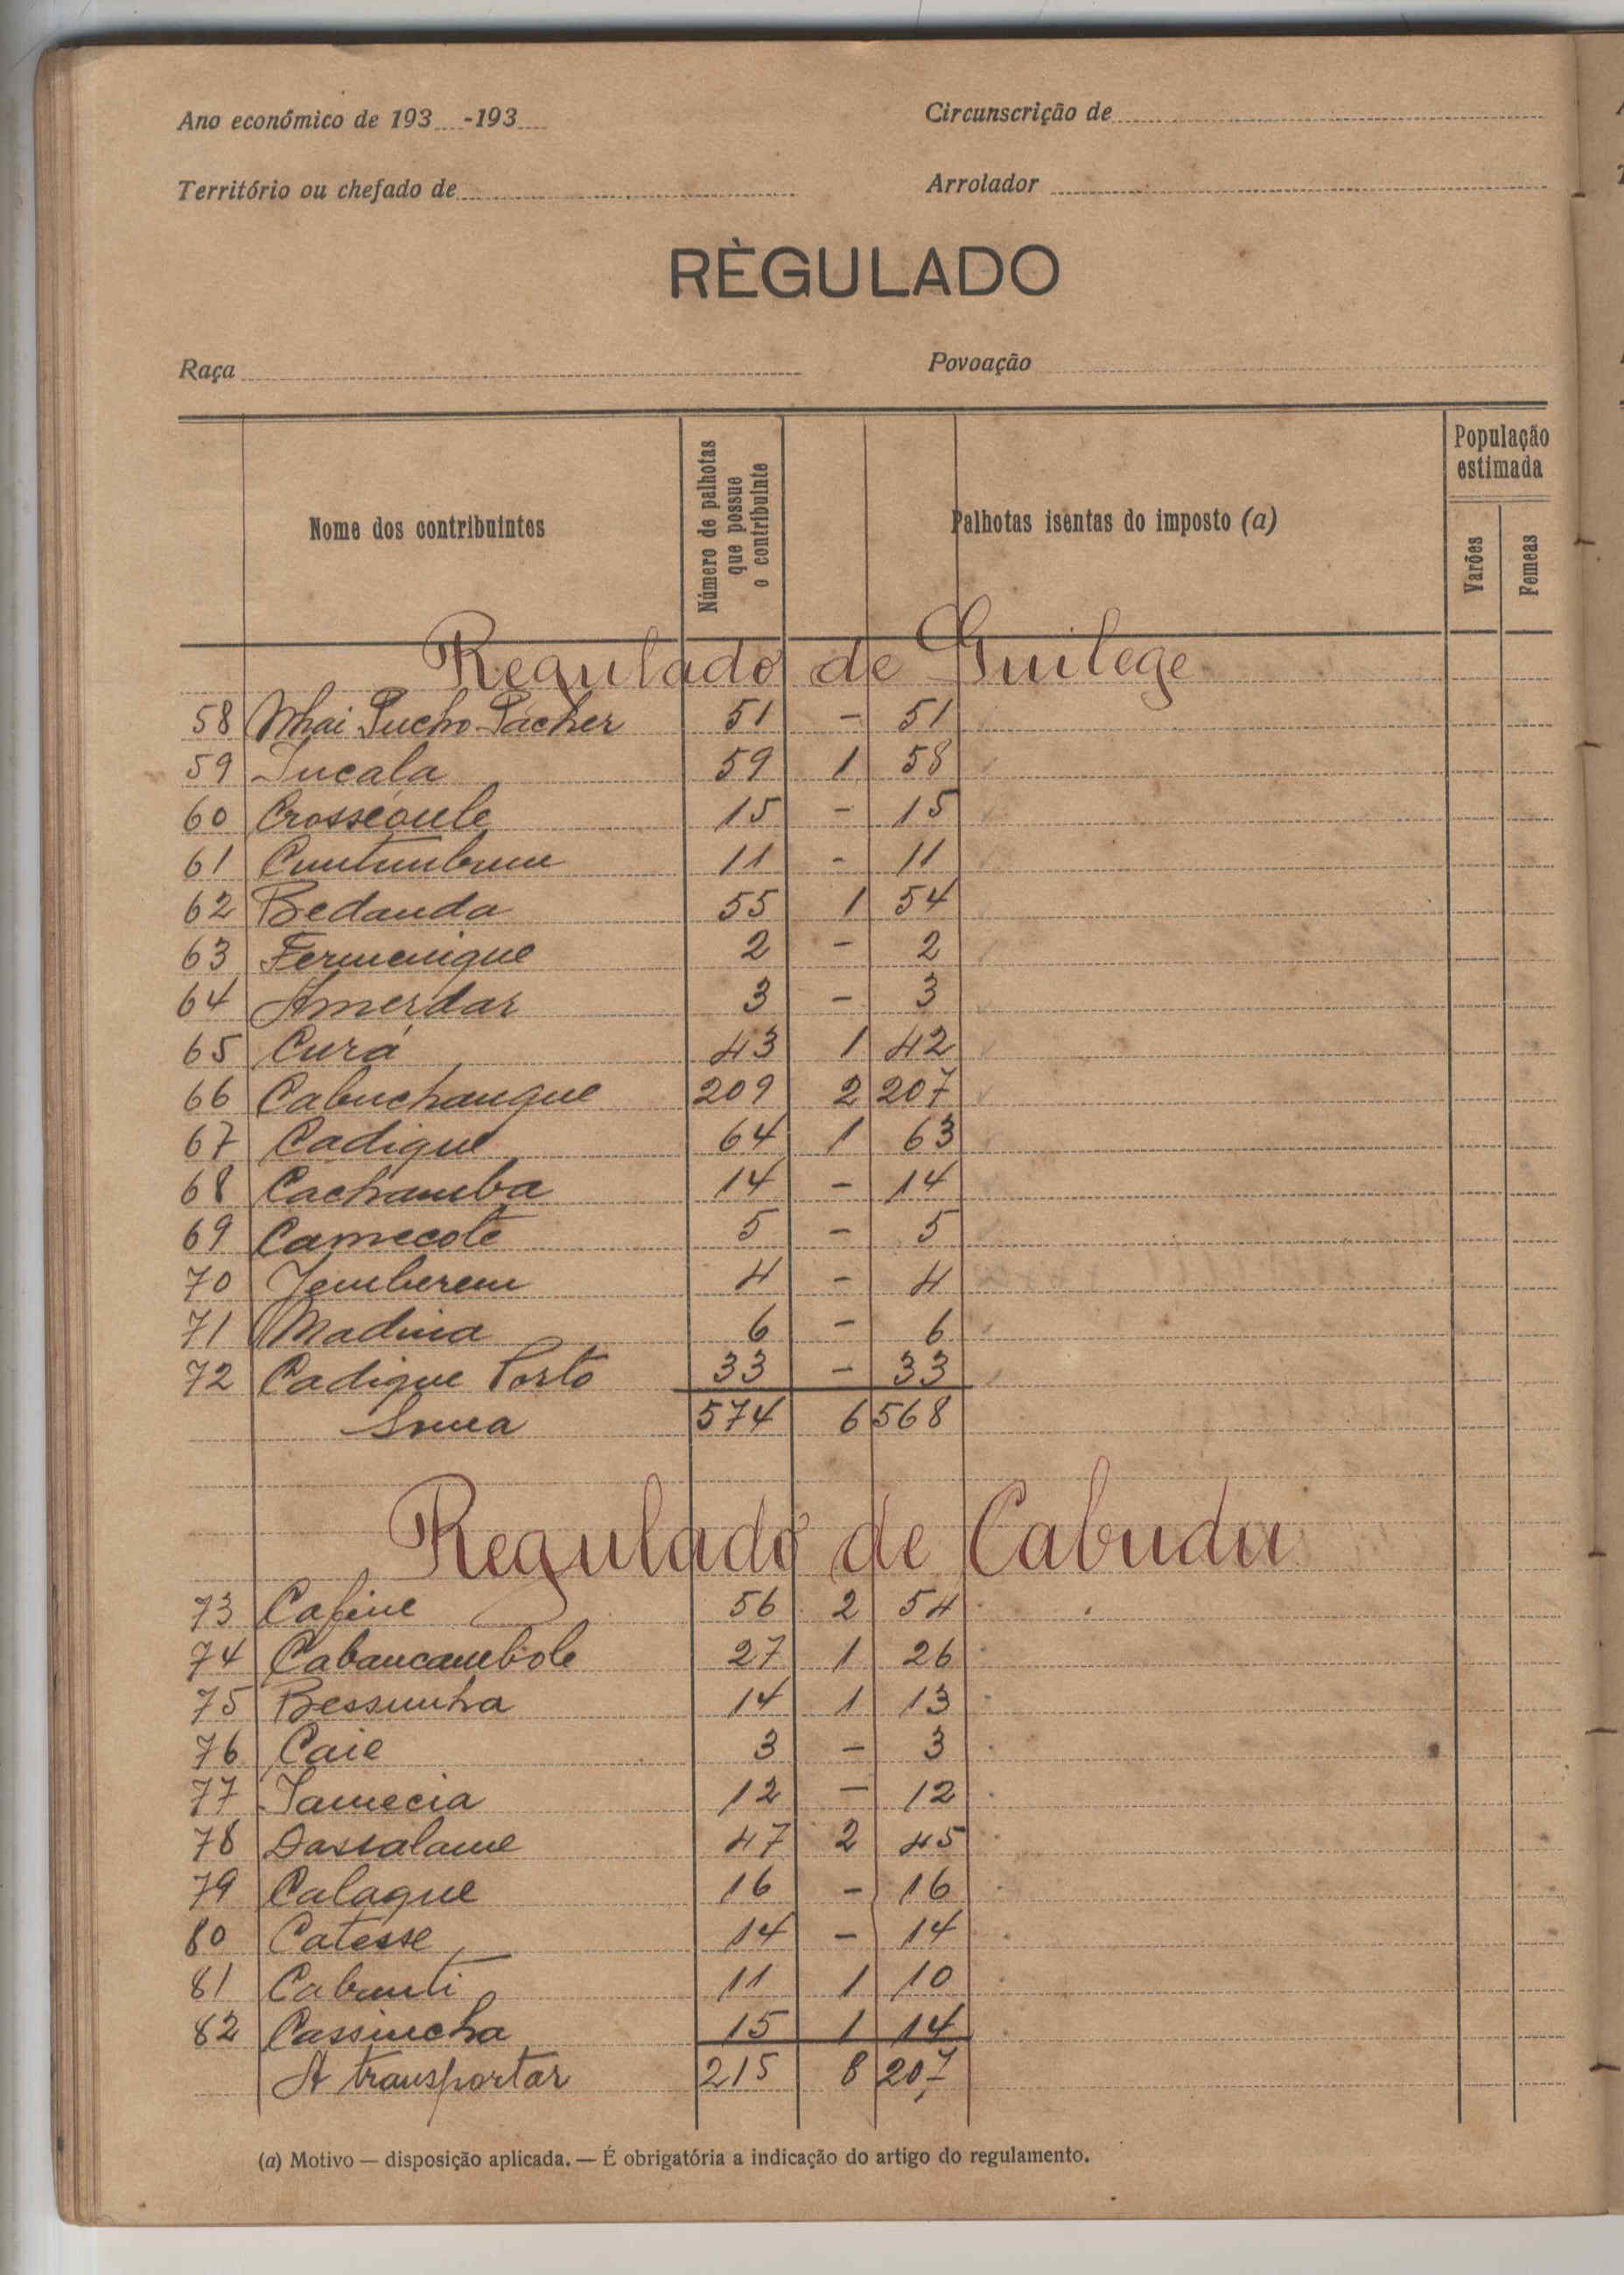 Ano económico de 193 -193
Circunscrição de
Território ou chefado de
Arrolador
RÈGULADO
Raça
Povoação
Nome dos contribuintes
Número de palhotas que possue o contribuinte
Palhotas isentas do imposto (a)
População estimada
Varões
Femeas
Regulado de Guilege
58 51 - 51
59 59 1 58
60 15 - 15
61 11 - 11
62 Bedanda 55 1 54
63 Fermenique 2 - 2
64 Amerdar 3 - 3
65 Curá 43 1 42
66 Cabuchanque 209 2 207
67 Cadique 64 1 63
68 Cachamba 14 - 14
69 Camecote 5 - 5
70 Jemberem 4 - 4
71 Madina 6 - 6
72 Cadique Porto 33 - 33
Soma 574 6 568
Regulado de
73 Cafine 56 2 54
74 Cabancambole 27 1 26
75 Bessunha 14 1 13
76 Caie 3 - 3
77 12 - 12
78 Dassalame 47 2 45
79 Calaque 16 - 16
80 Catesse 14 - 14
81 Cabunti 11 1 10
82 Cassincha 15 1 14
A transportar 215 8 207
(a) Motivo — disposição aplicada. — É obrigatória a indicação do artigo do regulamento.